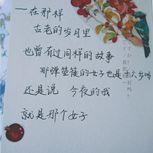 —在那样
古老的岁月里
也曾有过同样的故事
那弹箜篌的女子也是十六岁吗
还是说 今夜的我
就是那个女子